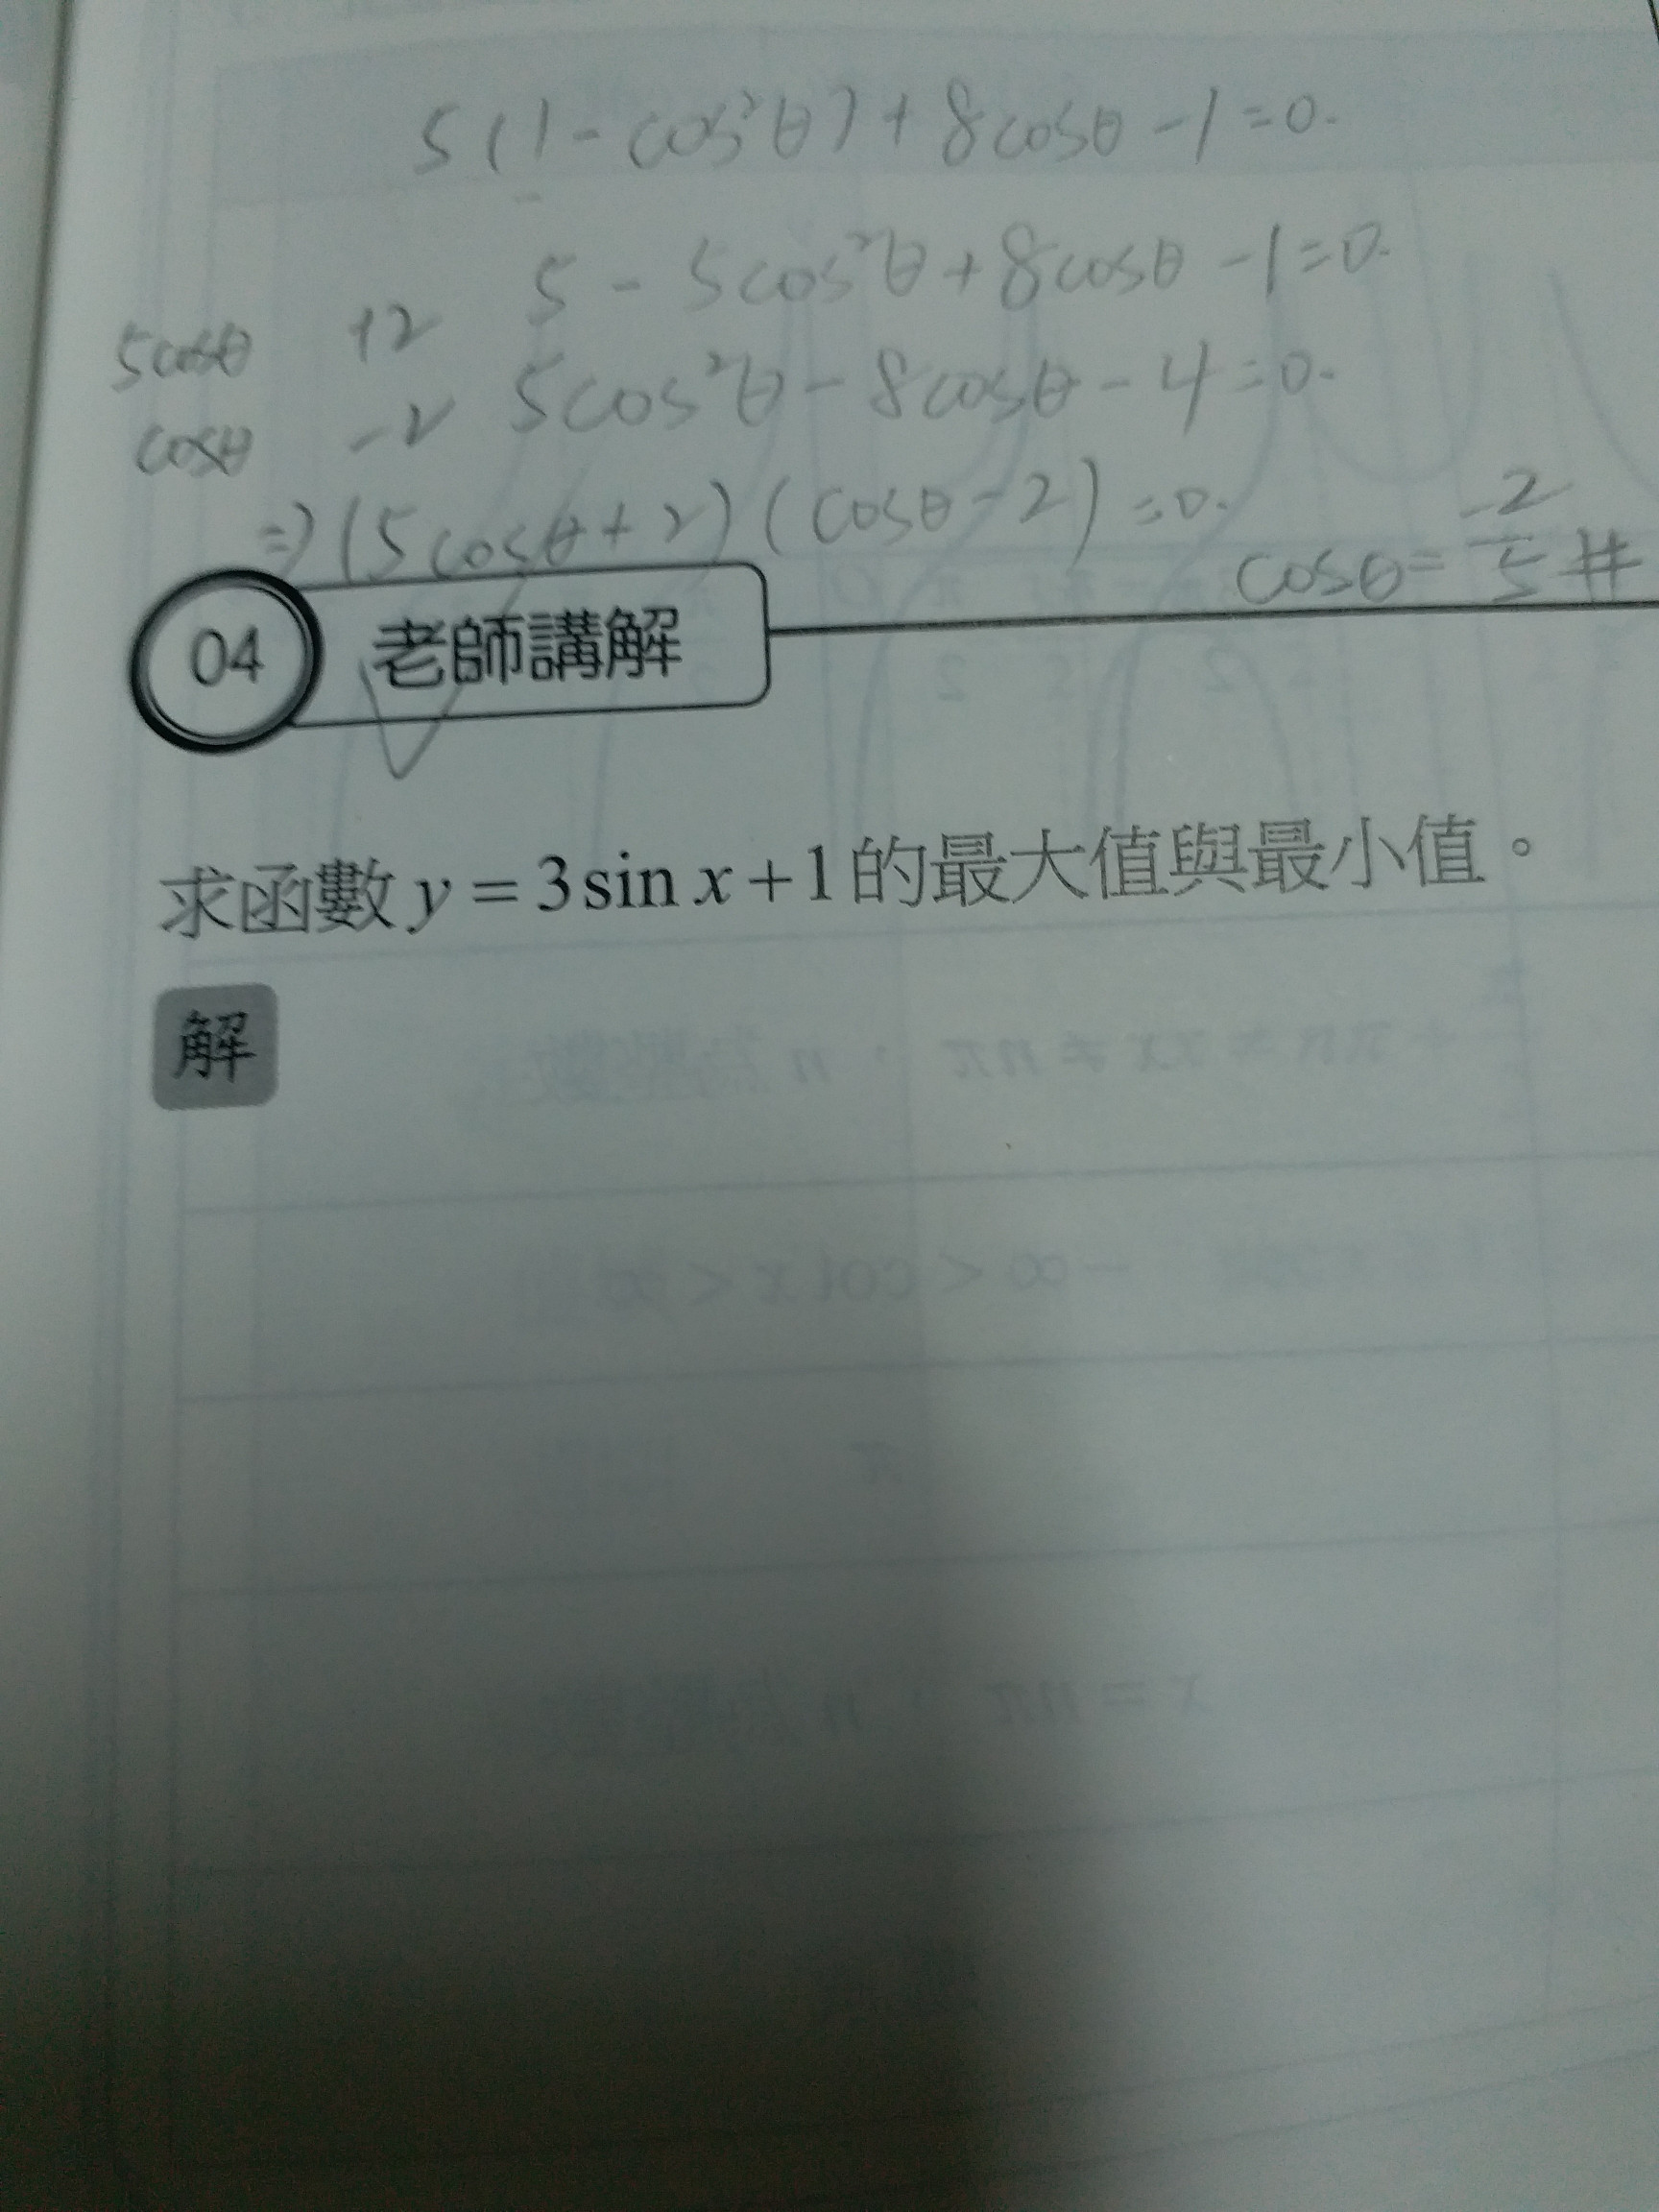 5(1-cos²θ)+8cosθ-1=0.
5-5cos²θ+8cosθ-1=0.
5cosθ +2
5cos²θ-8cosθ-4=0.
cosθ -2
⇒(5cosθ+2)(cosθ-2)=0.
cosθ=-2/5 #
04 老師講解
求函數y=3sinx+1的最大值與最小值。
解